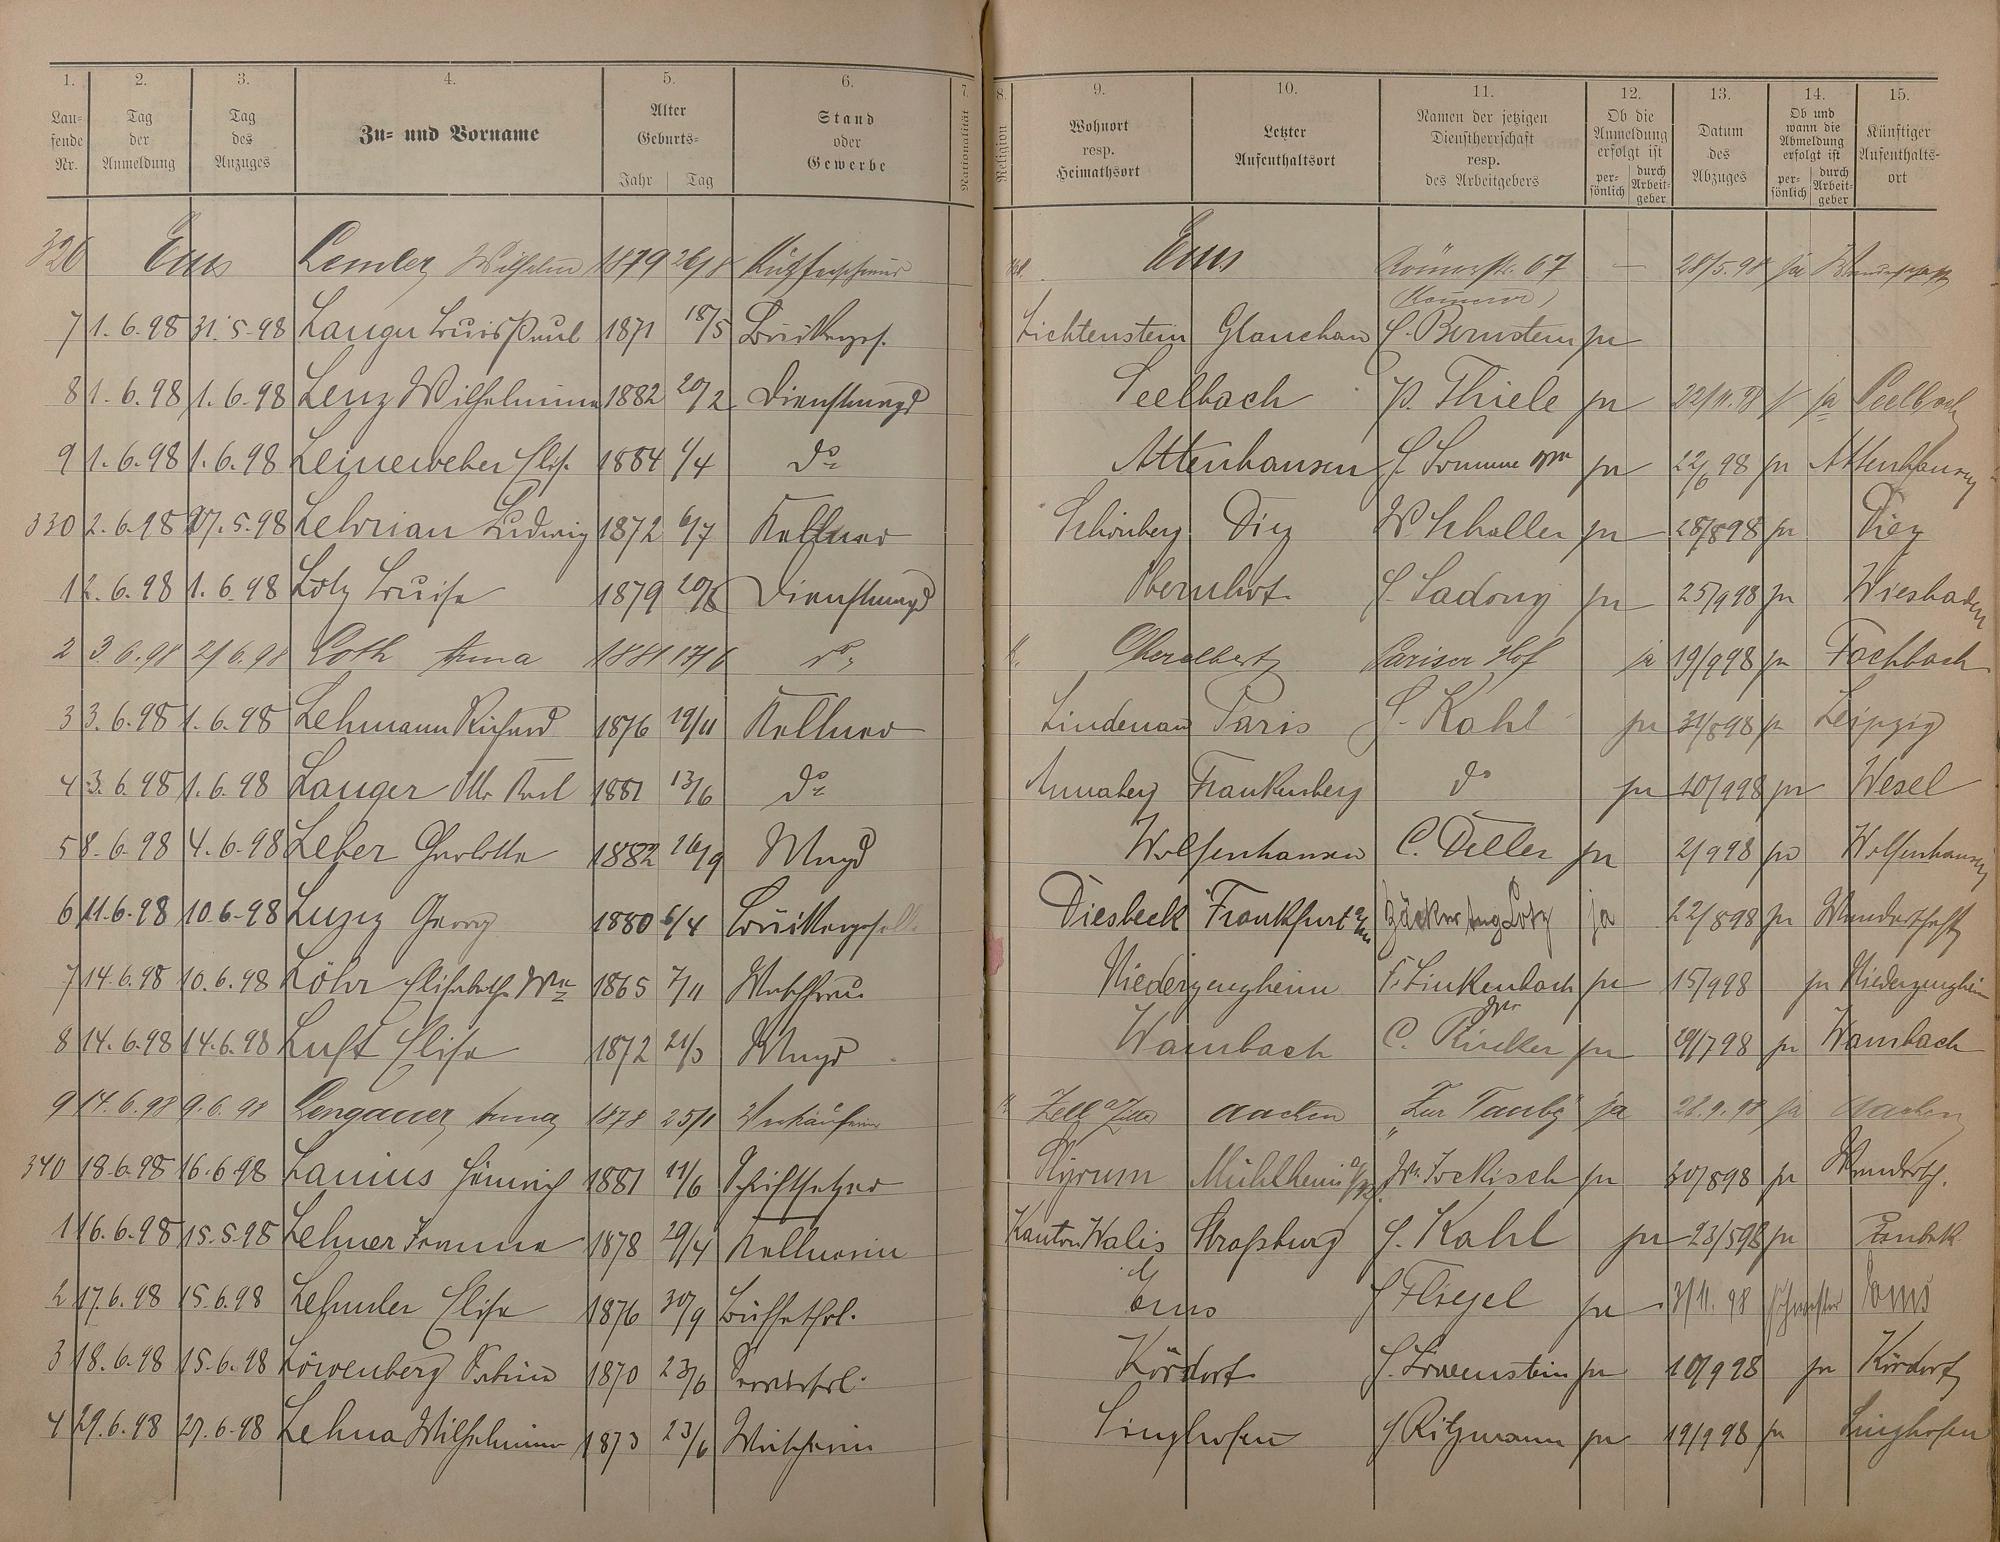 1. 2. 3. 4. 5. 6. 7. 8. 9. 10. 11. 12. 13. 14. 15.
Lau-
fende
Nr.
Tag
der
Anmeldung
Tag
des
Anzuges
Zu- und Vorname
Alter
Geburts-
Jahr Tag
Stand
oder
Gewerbe
Nationalität
Religion
Wohnort
resp.
Heimathsort
Letzter
Aufenthaltsort
Namen der jetzigen
Dienstherrschaft
resp.
des Arbeitgebers
Ob die
Anmeldung
erfolgt ist
per-
sönlich
durch
Arbeit-
geber
Datum
des
Abzuges
Ob und
wann die
Abmeldung
erfolgt ist
per-
sönlich
durch
Arbeit-
geber
Künftiger
Aufenthalts-
ort
326 Ems Lemler Wilhelm 1879 26/8 Ems Römerstr. 67 — 28/5.98 ja
7 1.6.98 31.5.98 Langer Louis Paul 1871 18/5 Lichtenstein Glauchau J. Bernstein ja
8 1.6.98 1.6.98 Lenz Wilhelmine 1882 20/2 Dienstmagd Seelbach P. Thiele ja 22/11.98 ja Seelbach
9 1.6.98 1.6.98 Leineweber Elis. 1884 1/4 do Attenhausen J. Sommer ja 22/6 98 ja Attenhausen
330 2.6.98 27.5.98 Lehrian Ludwig 1872 6/7 Kellner Schönberg Diez W. Schaller ja 28/8 98 ja Diez
1 2.6.98 1.6.98 Lotz Louise 1879 20/8 Dienstmagd Obernhof ja 25/9 98 ja Wiesbaden
2 3.6.98 2/6.98 Loth Anna 1881 17/6 do Oberelbert Pariser Hof ja 19/9 98 ja Fachbach
3 3.6.98 1.6.98 Lehmann Richard 1876 19/11 Kellner Lindenau Paris J. Kahl ja 31/8 98 ja Leipzig
4 3.6.98 1.6.98 Langer Otto Karl 1881 13/6 do Annaberg Frankenberg do ja 10/9 98 ja Wesel
5 8.6.98 4.6.98 Leber Charlotte 1882 26/9 Magd Wolfenhausen C. Deller ja 2/9 98 ja Wolfenhausen
6 11.6.98 10.6.98 Georg 1880 6/4 Diesbeck Frankfurt a/m Bäcker Aug Lotz ja 22/8 98 ja Wanderschaft
7 14.6.98 10.6.98 Löhr Elisabeth Wwe 1865 7/11 Waschfrau Niederzeuzheim F. Linkenbach ja 15/9 98 ja Niederzeuzheim
8 14.6.98 14.6.98 Luft Elise 1872 21/3 Magd Wambach C. Rücker ja 29/7 98 ja Wambach
9 14.6.98 9.6.98 Lengauer Anna 1878 25/1 Verkäuferin Zell Aachen "Zur Taube" ja 28.9.98 ja Aachen
340 18.6.98 16.6.98 Lanius Heinrich 1881 11/6 Schriftsetzer Mühlheim ja 30/8 98 ja Wandersch.
1 16.6.98 15.5.98 Lehner 1878 29/4 Kellnerin Kanton Walis Straßburg J. Kahl ja 23/5 98 ja
2 17.6.98 15.6.98 Lehmler Elise 1876 30/9 Büffetfrl. Ems J Flügel ja 3/11.98 Schwester Ems
3 18.6.98 15.6.98 Löwenberg 1870 23/6 Servierfrl. Kördorf J. Löwenstein ja 10/9 98 ja Kördorf
4 29.6.98 27.6.98 Lehna Wilhelmine 1873 23/6 Singhofen J Ritzmann ja 19/9 98 ja Singhofen